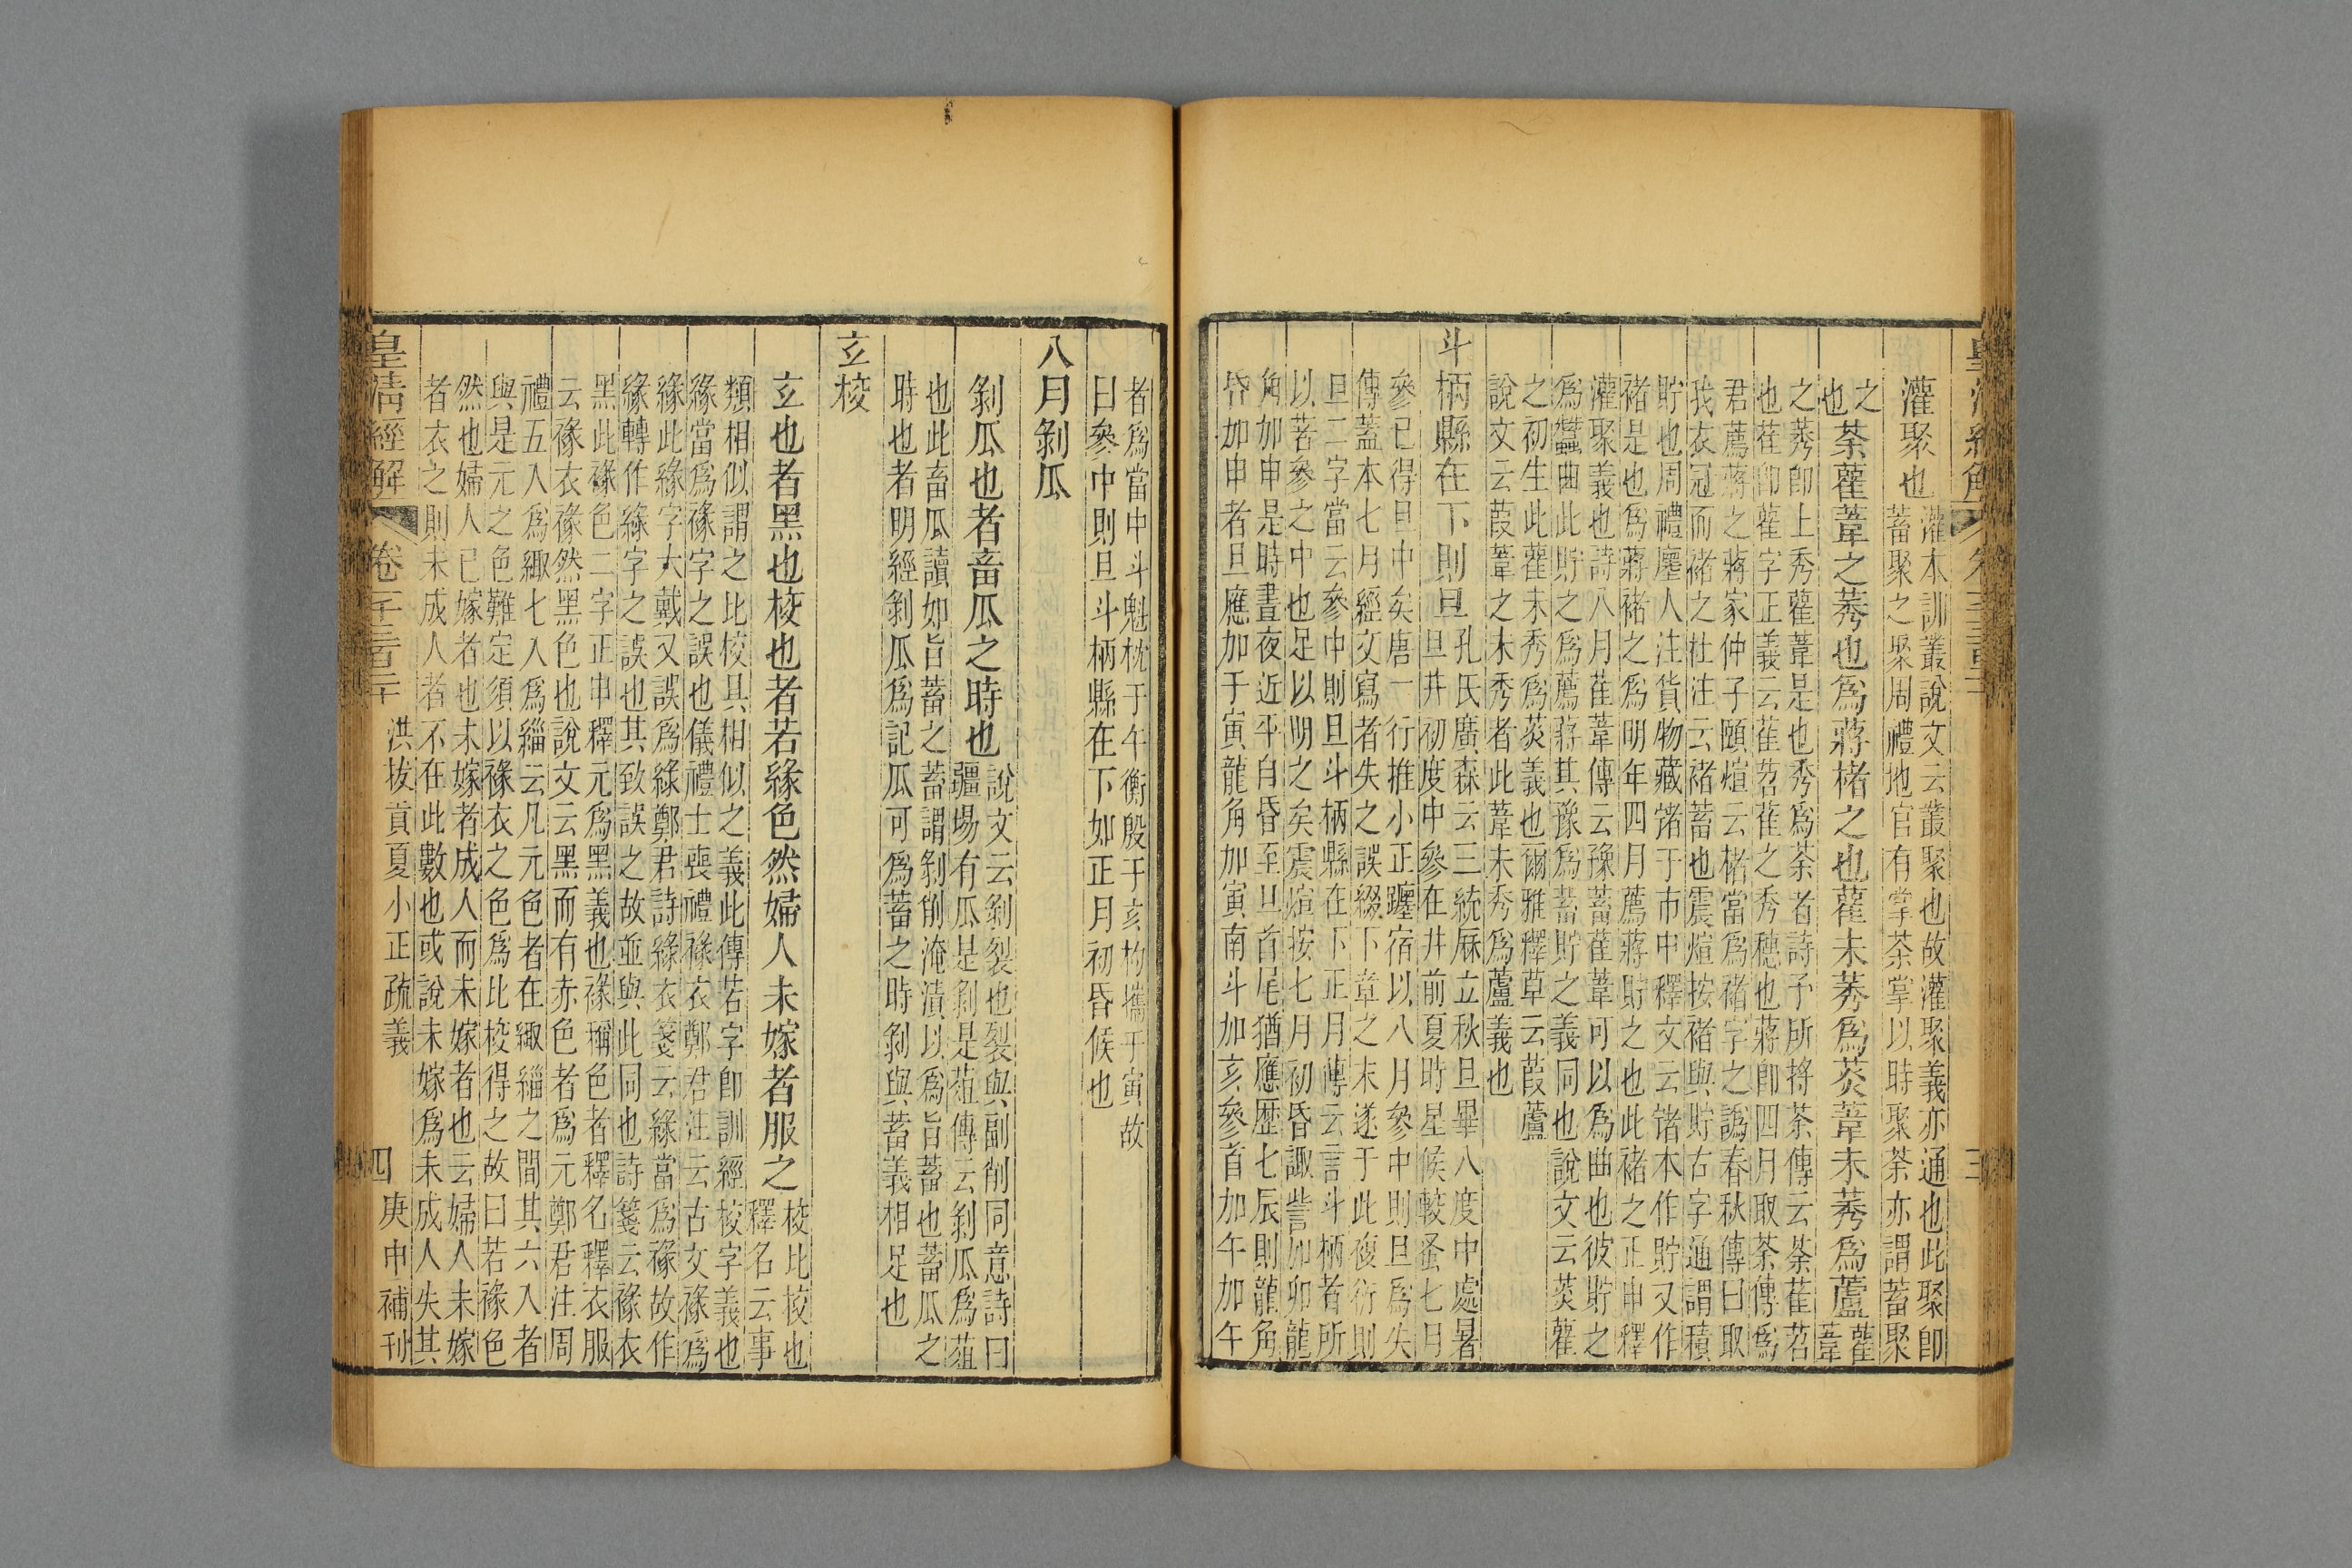 灌聚也灌本訓叢說文云叢聚也故灌聚義亦通也此聚卽
蓄聚之聚周禮地官有掌荼掌以時聚荼亦謂蓄聚
之
也荼雚葦之莠也爲蔣楮之也雚未莠爲菼葦未莠爲蘆雚
葦
之莠卽上秀雚葦是也秀爲荼者詩予所捋荼傳云荼萑苕
也萑卽雚字正義云萑苕萑之秀穗也蔣卽四月取荼傳爲
君薦蔣之蔣家仲子頤煊云楮當爲褚字之譌春秋傳曰取
我衣冠而褚之杜注云褚蓄也震煊按褚與貯古字通謂積
貯也周禮廛人注貨物藏㣔于市中釋文云㣔本作貯又作
褚是也爲蔣褚之爲明年四月薦蔣貯之也此褚之正申釋
灌聚義也詩八月萑葦傳云豫蓄萑葦可以爲曲也彼貯之
爲蠶曲此貯之爲薦蔣其豫爲蓄貯之義同也說文云菼雚
之初生此雚未秀爲菼義也爾雅釋草云葭蘆
說文云葭葦之未秀者此葦未秀爲蘆義也
斗柄縣在下則旦孔氏廣森云三統厤立秋旦畢八度中處暑
旦井初度中參在井前夏時星候較蚤七月
參已得旦中矣唐一行推小正躔宿以八月參中則旦爲失
傳蓋本七月經文寫者失之誤綴下章之末遂于此複衍則
旦二字當云參中則旦斗柄縣在下正月傳云言斗柄者所
以著參之中也足以明之矣震煊按七月初昏諏訾加卯龍
角加申是時晝夜近平自昏至旦首尾猶應歷七辰則龍角
昏加申者旦應加于寅龍角加寅南斗加亥參首加午加午
者爲當中斗魁枕于午衡殷于亥杓攜于寅故
曰參中則旦斗柄縣在下如正月初昏候也
八月剝瓜
剝瓜也者畜瓜之時也說文云剝裂也裂與副削同意詩曰
疆埸有瓜是剝是菹傳云剝瓜爲菹
也此畜瓜讀如旨蓄之蓄謂剝削淹漬以爲旨蓄也蓄瓜之
時也者明經剝瓜爲記瓜可爲蓄之時剝與蓄義相足也
玄校
玄也者黑也校也者若緣色然婦人未嫁者服之校比挍也
釋名云事
類相似謂之比校其相似之義此傳若字卽訓經校字義也
緣當爲褖字之誤也儀禮士喪禮褖衣鄭君注云古文褖爲
緣此緣字大戴又誤爲綠鄭君詩綠衣箋云綠當爲褖故作
緣轉作綠字之誤也其致誤之故並與此同也詩箋云褖衣
黑此褖色二字正申釋元爲黑義也褖稱色者釋名釋衣服
云褖衣褖然黑色也說文云黑而有赤色者爲元鄭君注周
禮五入爲緅七入爲緇云凡元色者在緅緇之間其六入者
與是元之色難定須以褖衣之色爲比校得之故曰若褖色
然也婦人已嫁者也未嫁者成人而未嫁者也云婦人未嫁
者衣之則未成人者不在此數也或說未嫁爲未成人失其
皇淸經解 卷一千三百二十 洪拔貢夏小正疏義 四 庚申補刊